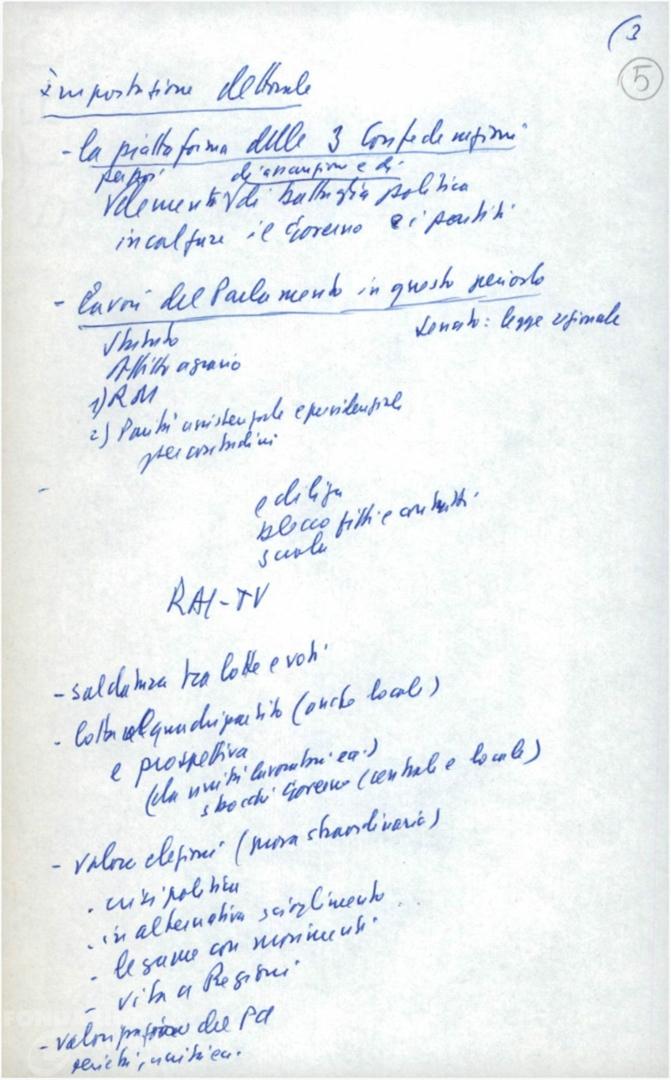 (3
5
Impostazione elettorale
- la piattaforma delle 3 Confederazioni
perposi di assunzione e di
elementi di battaglia politica
incalzare il Governo e i partiti
- Lavori del Parlamento in questo periodo
Statuto Senato: legge regionale
Affitto agrario
1) ROM
2) Parità assistenziale e previdenziale
per contadini
-
edilizia
blocco fitti e contratti
scuola
RAI-TV
- saldatura tra lotte e voti
- lotta al quadripartito (anche locale)
e prospettiva
(da unità lavoratori ea.)
sbocchi Governo (centrale e locale)
- valore elezioni (mora straordinaria)
. crisi politica
. in alternativa scioglimento
- legame con movimenti
- vita a Regioni
- valorizzazione del PCI